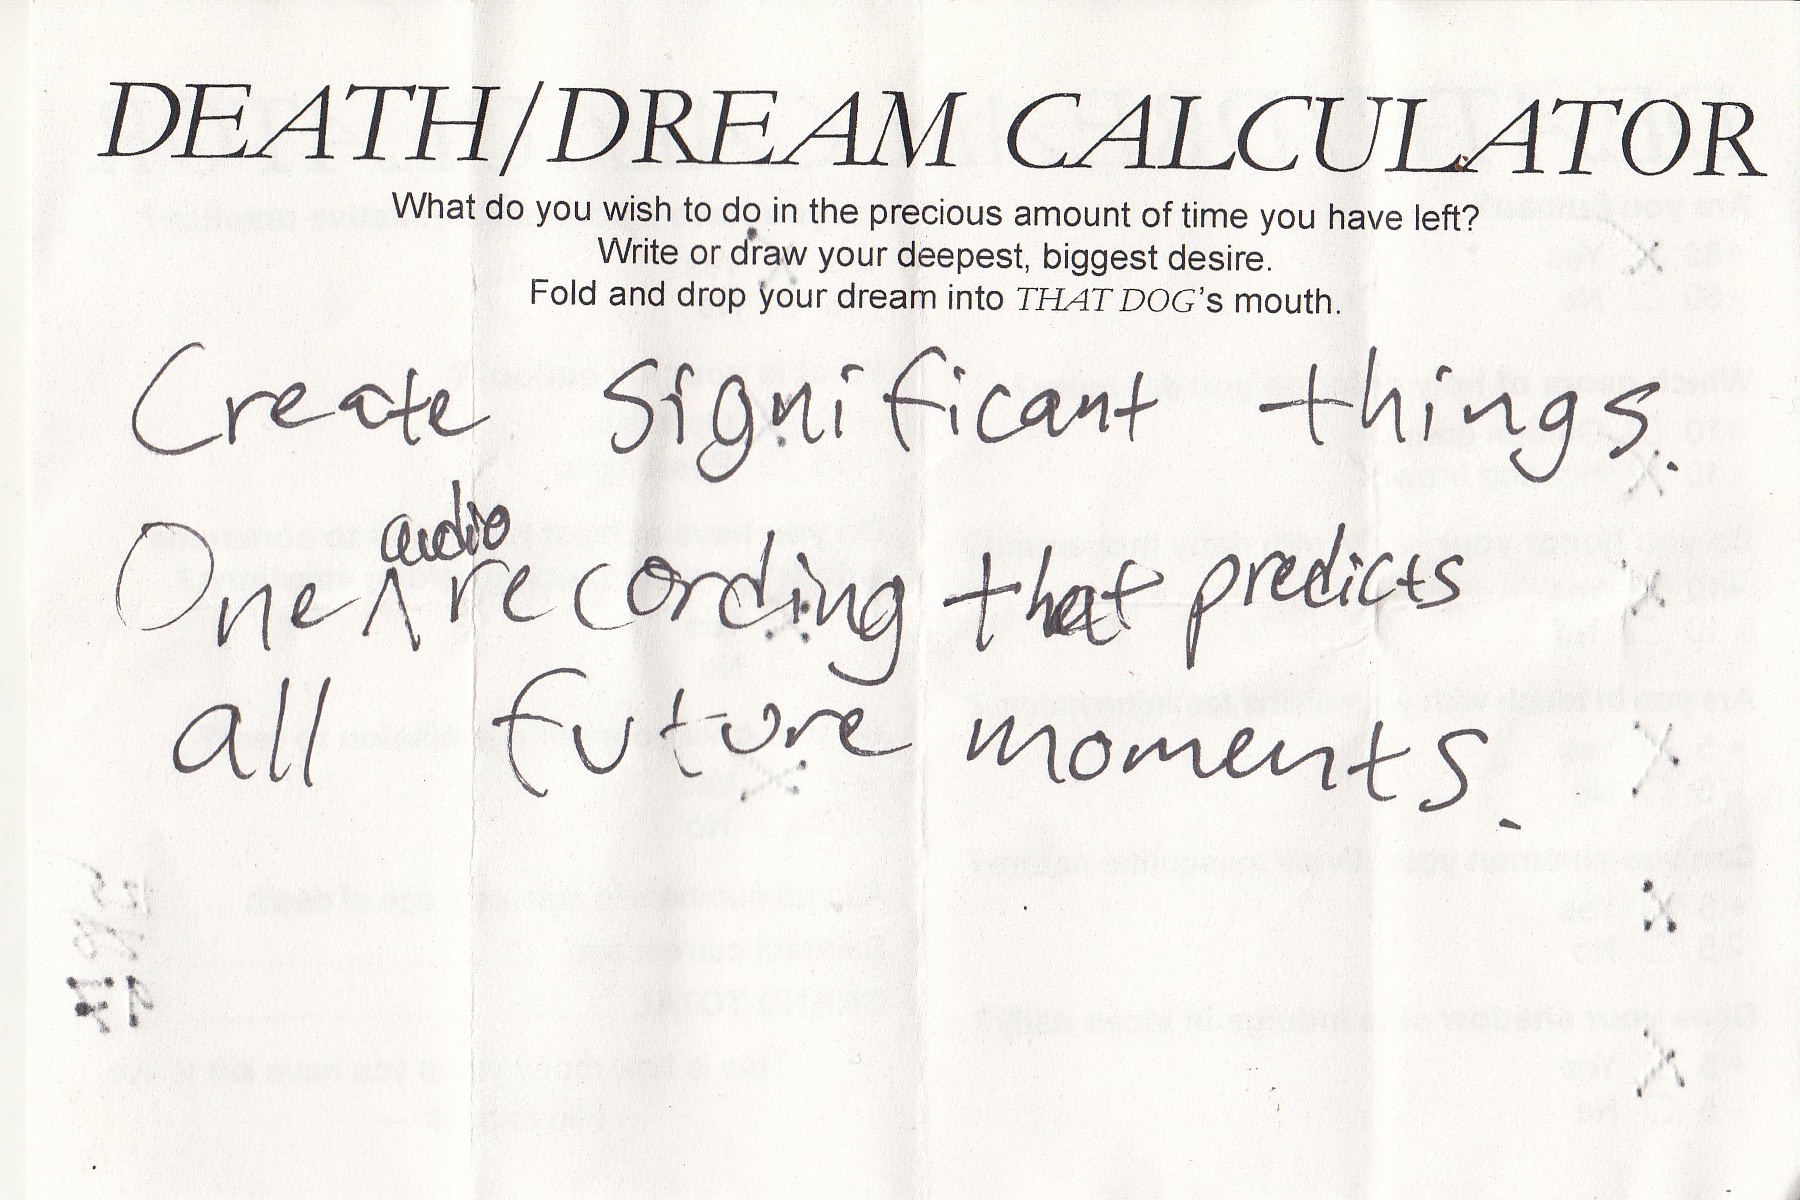 DEATH/DREAM CALCULATOR
What do you wish to do in the precious amount of time you have left?
Write or draw your deepest, biggest desire.
Fold and drop your dream into THAT DOG's mouth.
Create significant things.
One ^audio recording that predicts
all future moments.